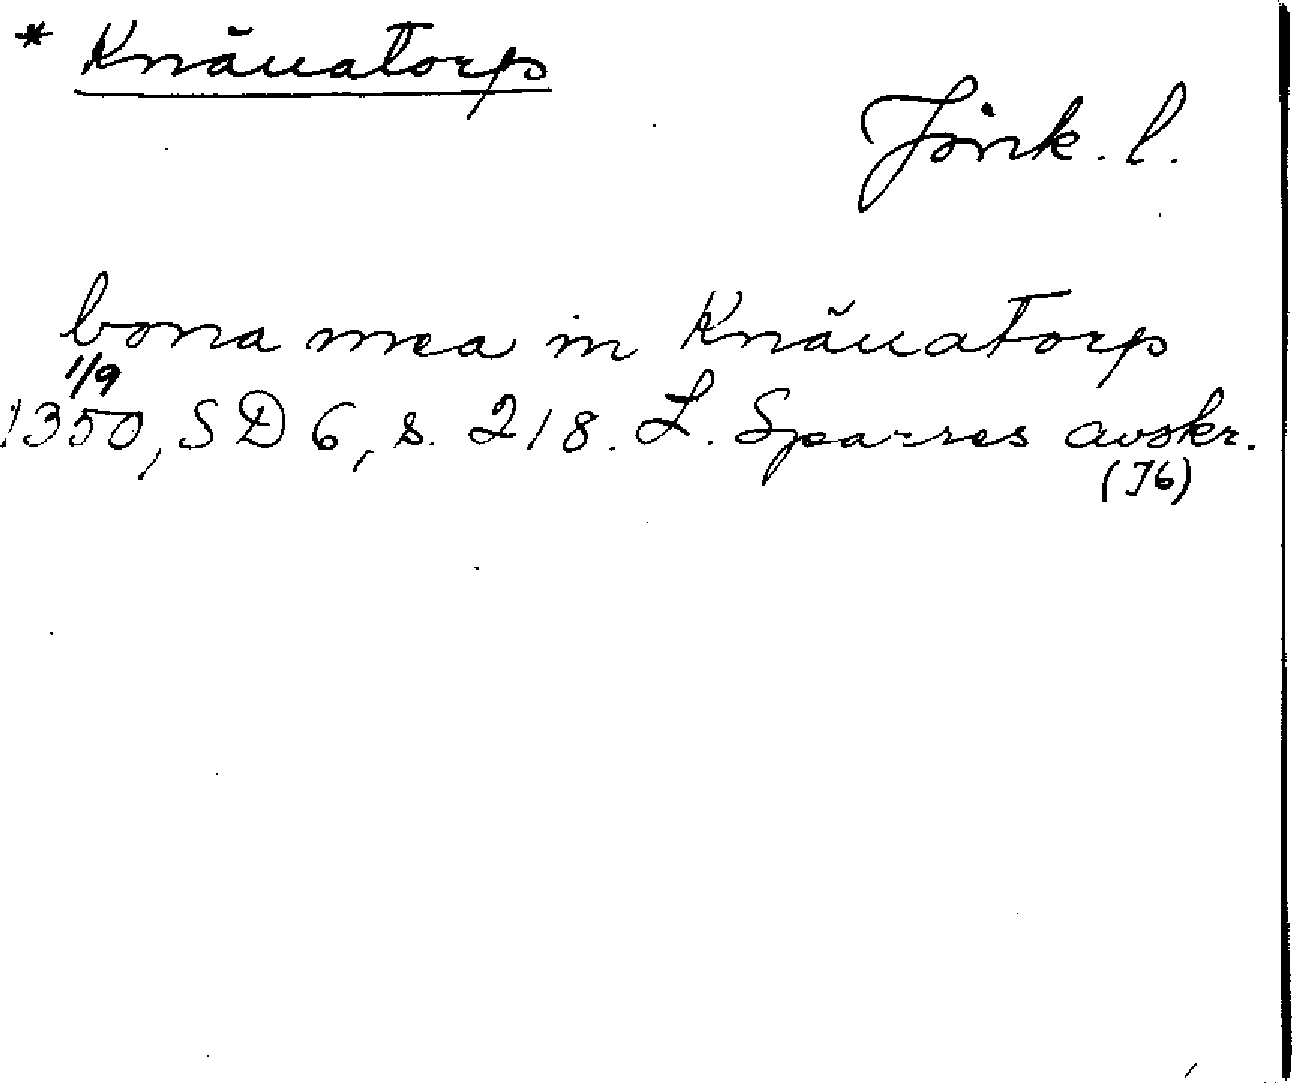 * Knäuatorp
Jönk. l.
bona mea in Knäuatorp
1/9
1350, SD 6, s. 218. L. Sparres avskr.
(I6)